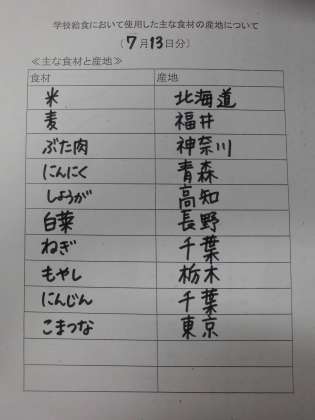 学校給食において使用した主な食材の産地について
（7月13日分）
≪主な食材と産地≫
食材 産地
米 北海道
麦 福井
ぶた肉 神奈川
にんにく 青森
しょうが 高知
白菜 長野
ねぎ 千葉
もやし 栃木
にんじん 千葉
こまつな 東京